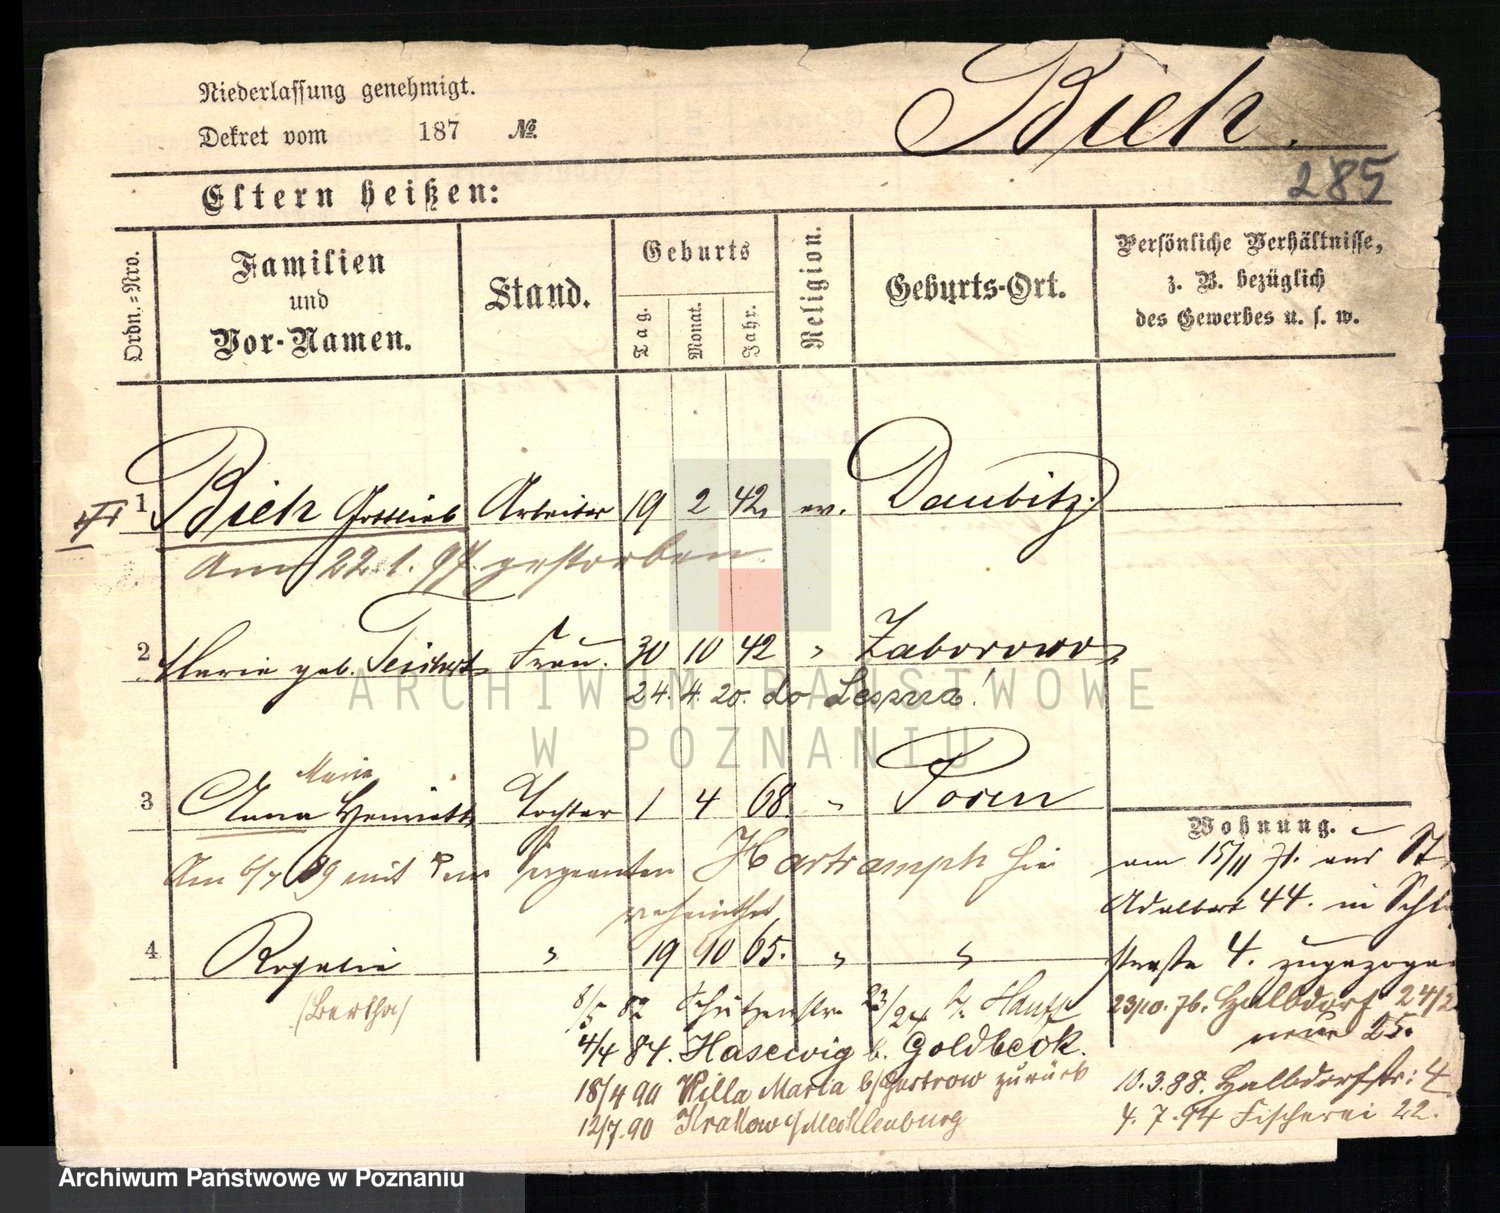 Niederlassung genehmigt.
Dekret vom 187 №.
Bieh.
285
Eltern heißen:
Ordn.-Nro.
Familien und Vor-Namen.
Stand.
Geburts
Tag.
Monat.
Jahr.
Religion.
Geburts-Ort.
Persönliche Verhältnisse,
z. B. bezüglich
des Gewerbes u. s. w.
1 Bieh Gottlieb Arbeiter 19 2 42 ev. Daubitz
Am 22.1.97. gestorben.
2 Marie geb. Teichert Frau. 30 10 42 " Zaborowo
24. 4. 20. do Leszna!
Marie
3 Anna Henriette Tochter 1 4 68. " Posen
Wohnung.
Am 6/7 89 mit dem Sergeanten Hartramph hie
verheirathet
am 15/11 71. aus St.
Adalbert 44. in
4 Rosalie " 19 10 65. " "
straße 4. zugezogen
(Bertha)
8/5 82 Schützenstr. 23/24 b.
23/10. 76. Halbdorf 24/2
neue 25.
4/4 84. Hasewig b. Goldbeck.
18/4 90 Villa Maria b/Gastrow zurück
10.3.88. Halbdorfstr: 4
12/7.90 Krakow i/Mecklenburg
4. 7. 94 Fischerei 22.
ARCHIWUM PAŃSTWOWE
W POZNANIU
Archiwum Państwowe w Poznaniu